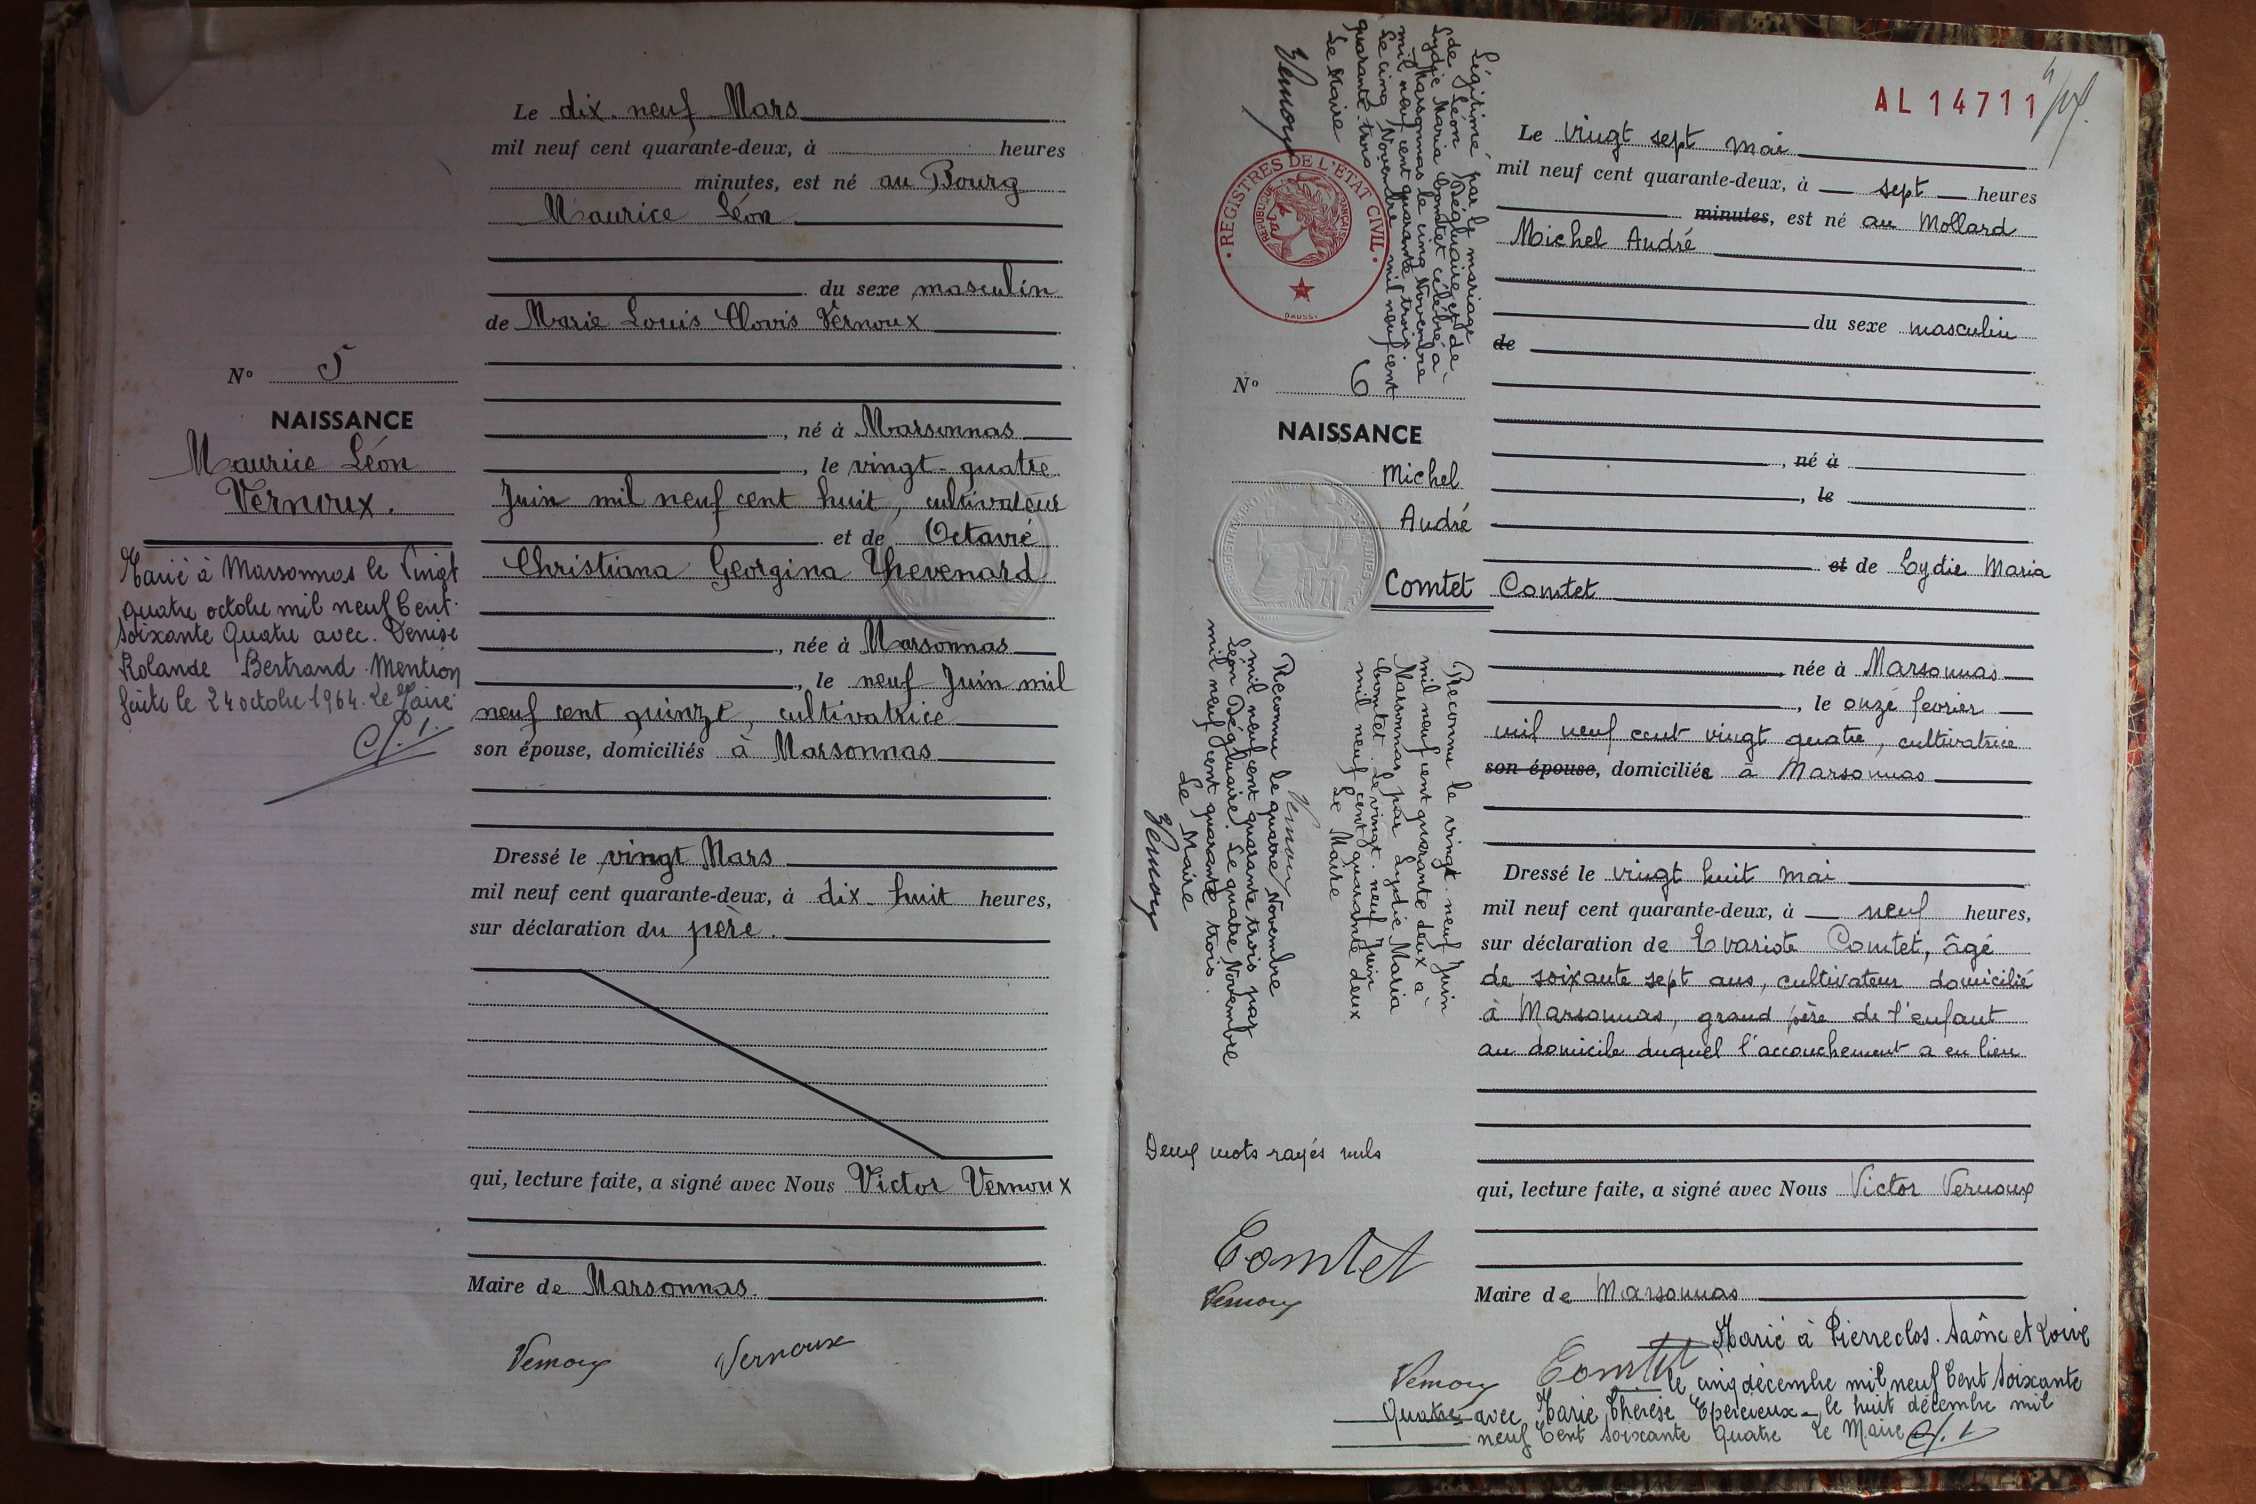 Le dix-neuf Mars
mil neuf cent quarante-deux, à heures
minutes, est né au Bourg
Maurice Léon
du sexe masculin
de Marie Louis Clovis Vernoux
, né à Marsonnas
, le vingt-quatre
Juin mil neuf cent huit, cultivateur
et de Octavie
Christiana Georgina Thevenard
, née à Marsonnas
, le neuf Juin mil
neuf cent quinze, cultivatrice
son épouse, domiciliés à Marsonnas
Dressé le vingt Mars
mil neuf cent quarante-deux, à dix-huit heures,
sur déclaration du père.
qui, lecture faite, a signé avec Nous Victor Vernoux
Maire de Marsonnas.
Vernoux Vernoux
N° 5
NAISSANCE
Maurice Léon
Vernoux.
Marié à Marsonnas le Vingt
quatre octobre mil neuf Cent
Soixante Quatre avec Denise
Rolande Bertrand Mention
faite le 24 octobre 1964. Le Maire
AL 14711
Le vingt sept mai
mil neuf cent quarante-deux, à sept heures
minutes, est né au Mollard
Michel André
du sexe masculin
de
, né à
, le
et de Lydie Maria
Comtet
née à Marsonnas
, le onze février
mil neuf cent vingt quatre, cultivatrice
son épouse, domiciliée à Marsonnas
Dressé le vingt huit mai
mil neuf cent quarante-deux, à neuf heures,
sur déclaration de Evariste Comtet, âgé
de soixante sept ans, cultivateur domicilié
à Marsonnas, grand père de l'enfant
au domicile duquel l'accouchement a eu lieu
qui, lecture faite, a signé avec Nous Victor Vernoux
Maire de Marsonnas
Vernoux Comtet
Marié à Pierreclos. Saône et Loire
le cinq décembre mil neuf Cent Soixante
Quatre avec Marie Thérèse Epercieux - le huit décembre mil
neuf Cent Soixante Quatre Le Maire
Légitimé par le mariage
de Léon Dégluaire et de
Lydie Maria Comtet célébré à
Marsonnas le cinq Novembre
mil neuf cent quarante trois
Le cinq Novembre mil neuf cent
quarante-trois
Le Maire
Vernoux
REGISTRES DE L'ÉTAT CIVIL
RÉPUBLIQUE FRANÇAISE
N° 6
NAISSANCE
Michel
André
Comtet
Reconnu le vingt-neuf Juin
mil neuf cent quarante deux à
Marsonnas par Lydie Maria
Comtet. Le vingt-neuf Juin
mil neuf cent quarante deux
Le Maire
Vernoux
Reconnu le quatre Novembre
mil neuf cent quarante trois par
Léon Dégluaire. Le quatre Novembre
mil neuf cent quarante trois.
Le Maire
Vernoux
Deux mots rayés nuls
Comtet
Vernoux